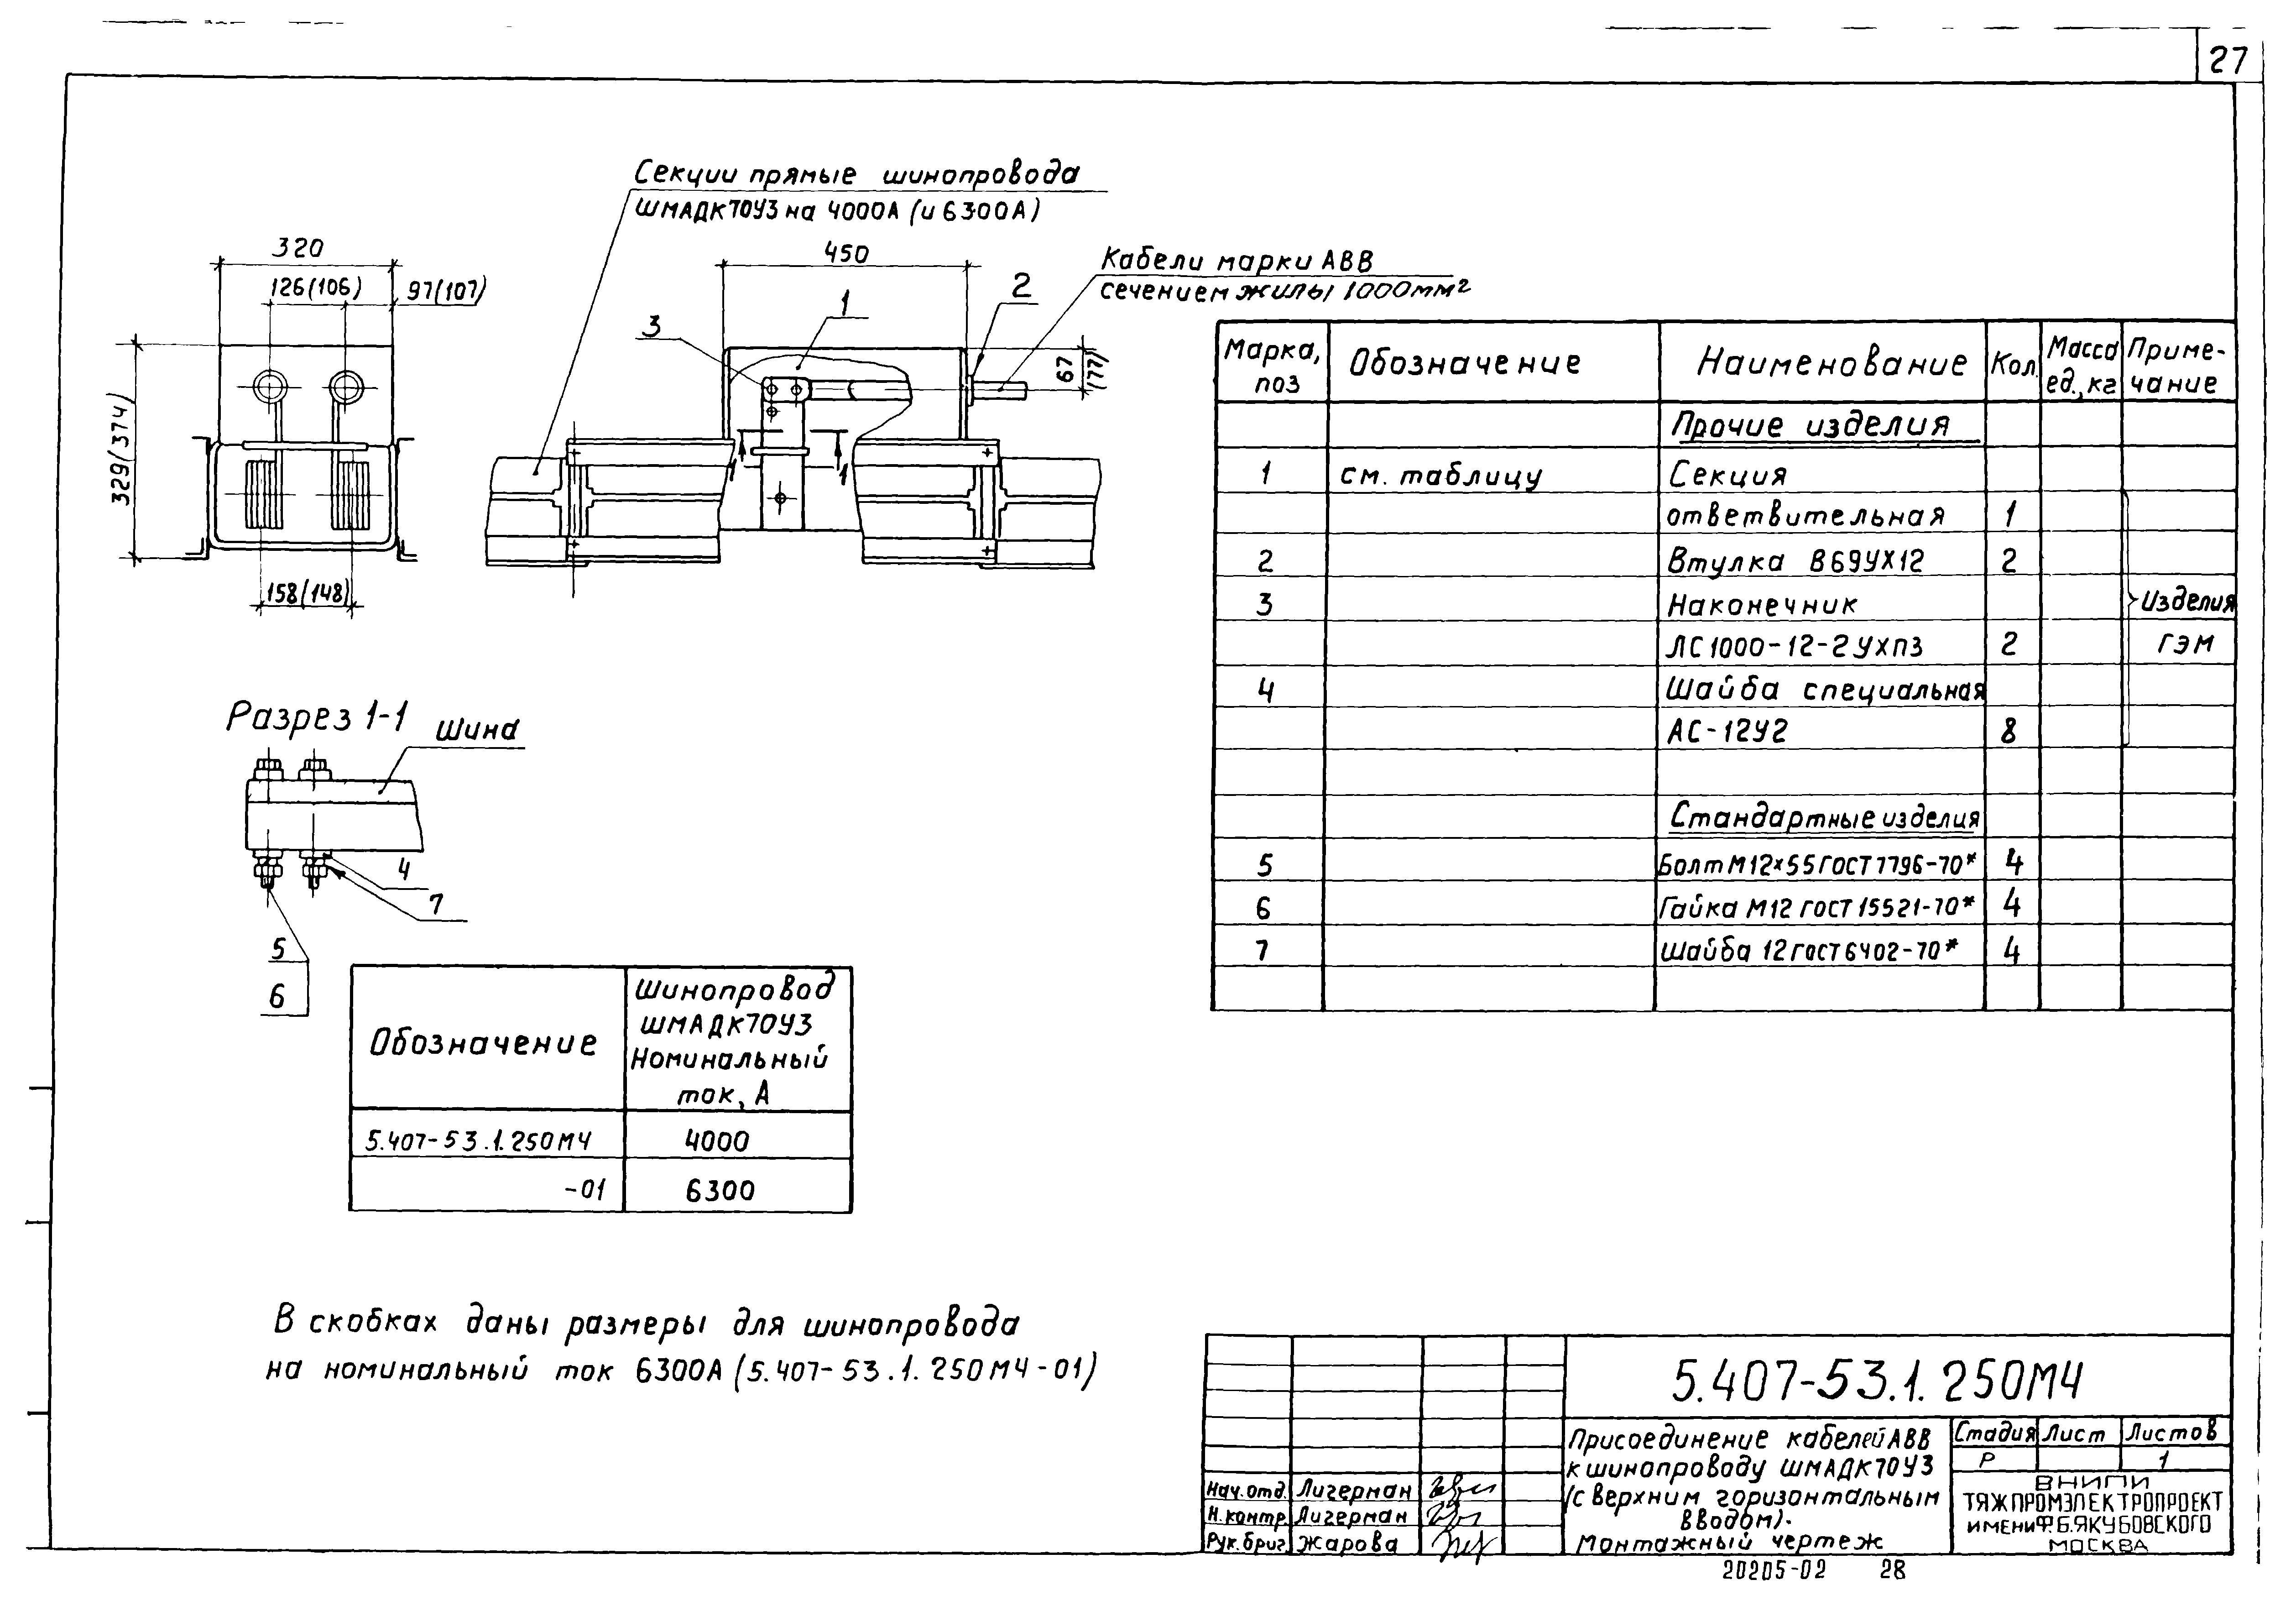 27
Секции прямые шинопровода
ШМАДК70У3 на 4000А (и 6300А)
Кабели марки АВВ
сечением жилы 1000мм²
320
126(106)
97(107)
329(374)
158(148)
450
67
(77)
1
2
3
1
1
Разрез 1-1
Шина
4
7
5
6
Марка, поз
Обозначение
Наименование
Кол.
Масса ед., кг
Приме-
чание
Прочие изделия
1 см. таблицу Секция
ответвительная 1
2 Втулка В69УХ12 2
3 Наконечник
ЛС1000-12-2УХЛ3 2
4 Шайба специальная
АС-12У2 8
Изделия
ГЭМ
Стандартные изделия
5 Болт М12×55 ГОСТ 7796-70* 4
6 Гайка М12 ГОСТ 15521-70* 4
7 Шайба 12 ГОСТ 6402-70* 4
Обозначение
Шинопровод
ШМАДК70У3
Номинальный
ток, А
5.407-53.1.250МЧ 4000
-01 6300
В скобках даны размеры для шинопровода
на номинальный ток 6300А (5.407-53.1.250МЧ-01)
5.407-53.1.250МЧ
Присоединение кабелей АВВ
к шинопроводу ШМАДК70У3
(с верхним горизонтальным
вводом).
Монтажный чертеж
Стадия Лист Листов
Р 1
ВНИПИ
ТЯЖПРОМЭЛЕКТРОПРОЕКТ
ИМЕНИ Ф.Б.ЯКУБОВСКОГО
МОСКВА
Нач. отд. Лигерман
Н. контр. Лигерман
Рук. бриг. Жарова
20205-02 28